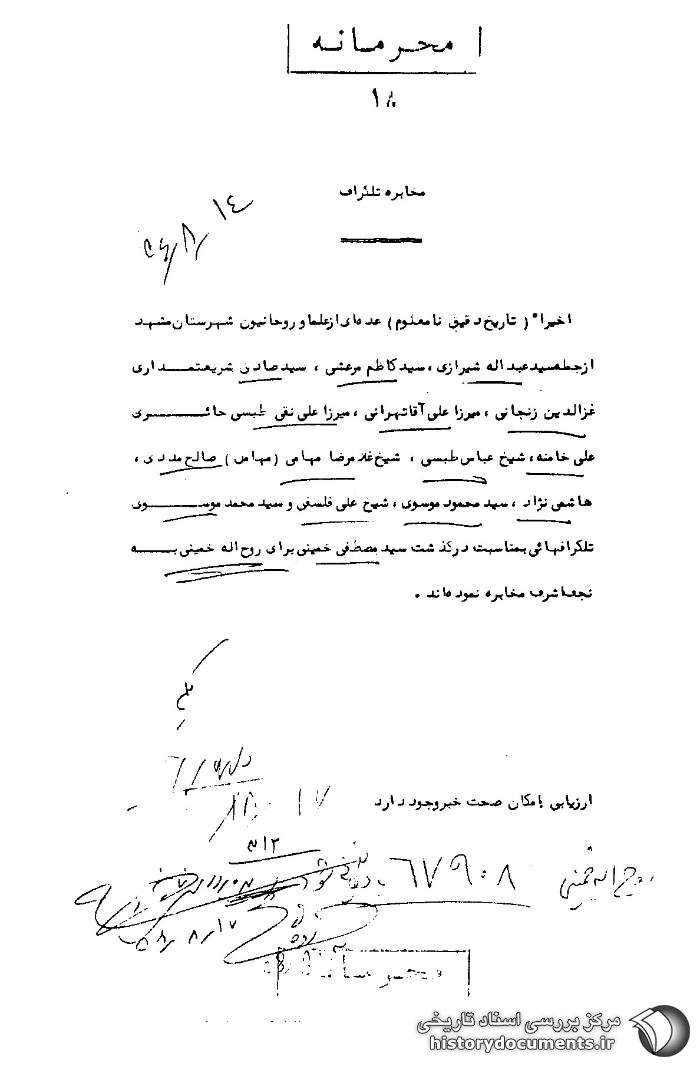 محرمانه
مخابره تلگراف
۱۴
اخیراً ( تاریخ دقیق نامعلوم ) عده‌ای از علما و روحانیون شهرستان مشهد
ازجمله سید عبداله شیرازی ، سید کاظم مرعشی ، سید صادق شریعتمداری
عزالدین زنجانی ، میرزا علی آقا تهرانی ، میرزا علی نقی طبسی حائری
علی خامنه ، شیخ عباس طبسی ، شیخ غلامرضا مهامی (مهامی) صالح مددی ،
هاشمی نژاد ، سید محمود موسوی ، شیخ علی فلسفی و سید محمد موسوی
تلگرافهائی بمناسبت درگذشت سید مصطفی خمینی برای روح اله خمینی به
نجف اشرف مخابره نموده‌اند .
ارزیابی : امکان صحت خبر وجود دارد
۳۱۲
روح اله خمینی ۶۷۹۰۸
۸/۱۷
محرمانه
مرکز بررسی اسناد تاریخی
historydocuments.ir